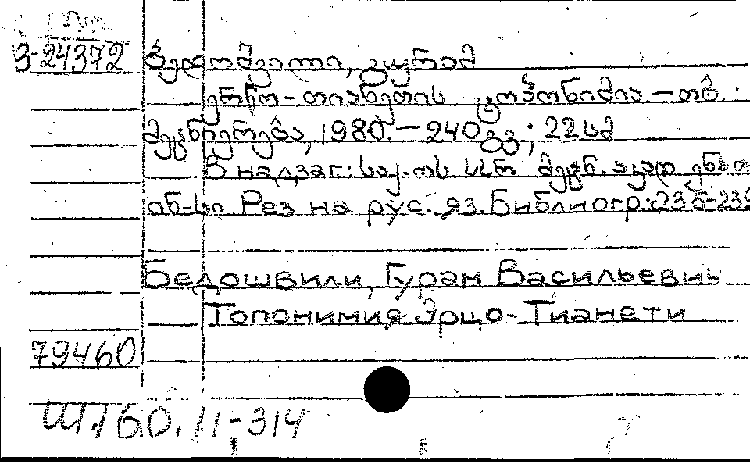 3-24372 ბედოშვილი, გურამ
ერწო-თიანეთის ტოპონიმია - თბ.:
მეცნიერება, 1980. - 240გვ.; 22სმ
В надзаг: საქ-ოს მეცნ. აკად. ენათ
ინ-ტი. Рез на рус. яз. Библиогр: 235-239
Бедошвили, Гуран Васильевич
Топонимия Эрцо-Тианети
79460